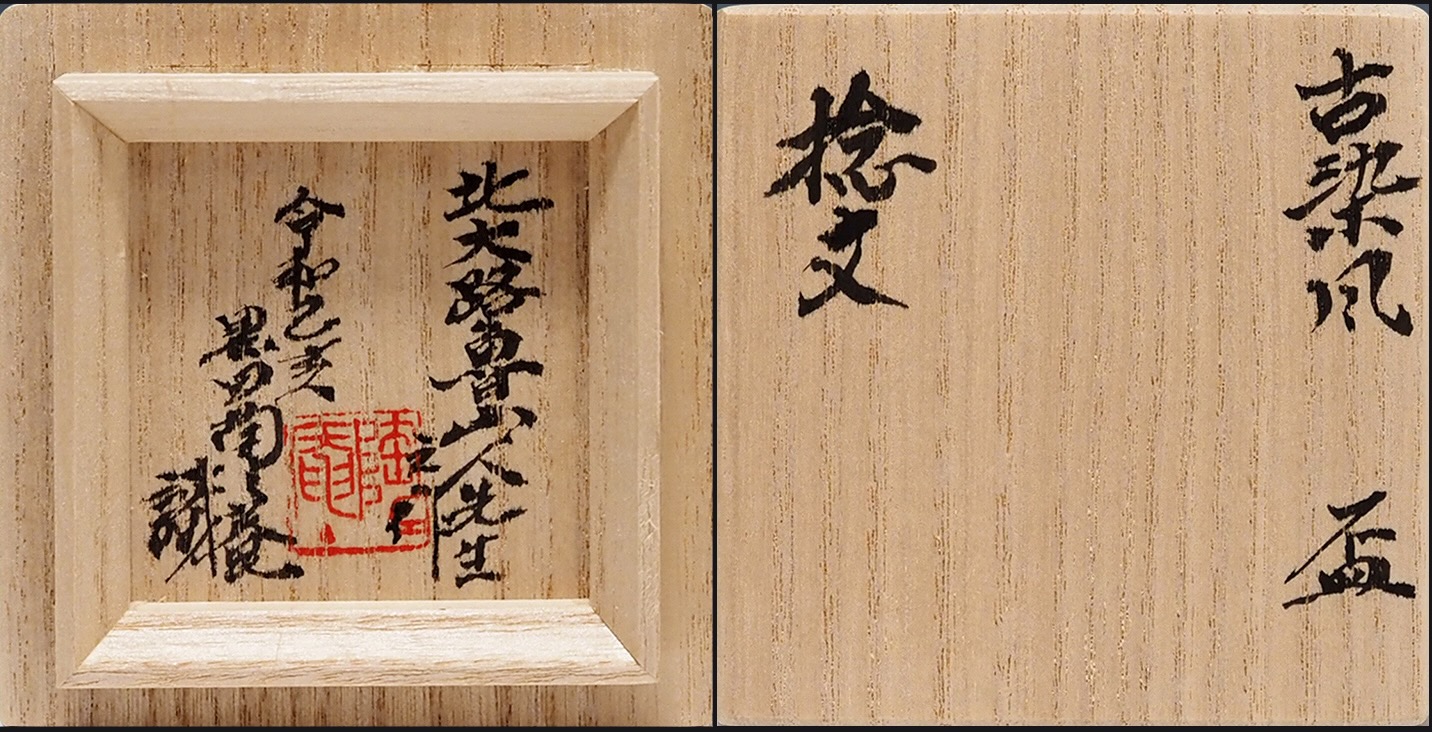 古染風 盃
捻文
北大路魯山人先生
之作
令和己亥
黒田陶々菴
識